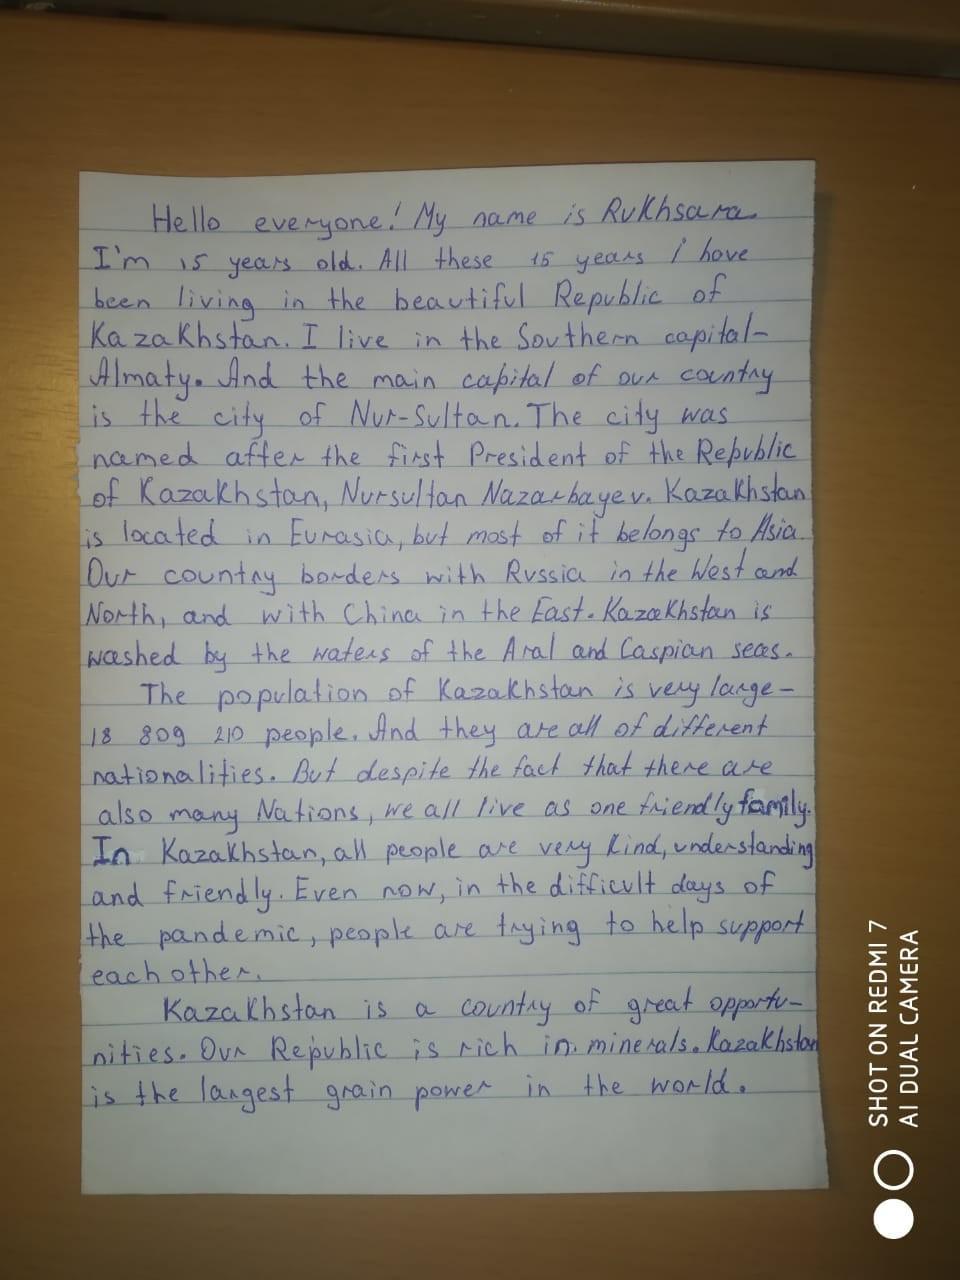 Hello everyone! My name is Rukhsara.
I'm 15 years old. All these 15 years i have
been living in the beautiful Republic of
Kazakhstan. I live in the Southern capital-
Almaty. And the main capital of our country
is the city of Nur-Sultan. The city was
named after the first President of the Republic
of Kazakhstan, Nursultan Nazarbayev. Kazakhstan
is located in Eurasia, but most of it belongs to Asia.
Our country borders with Russia in the West and
North, and with China in the East. Kazakhstan is
washed by the waters of the Aral and Caspian seas.
The population of Kazakhstan is very large-
18 809 210 people. And they are all of different
nationalities. But despite the fact that there are
also many Nations, we all live as one friendly family.
In Kazakhstan, all people are very kind, understanding
and friendly. Even now, in the difficult days of
the pandemic, people are trying to help support
each other.
Kazakhstan is a country of great opportu-
nities. Our Republic is rich in. minerals. Kazakhstan
is the largest grain power in the world.
SHOT ON REDMI 7
AI DUAL CAMERA